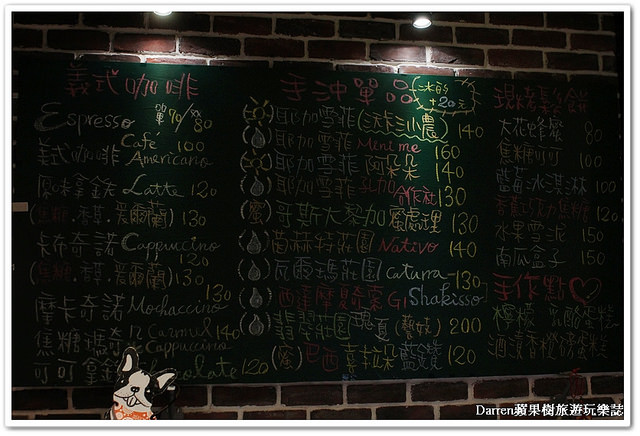 義式咖啡
Espresso 單70/雙80
美式咖啡 Café Americano 100
原味拿鐵 Latte 120
(焦糖.香草.愛爾蘭) 130
卡布奇諾 Cappuccino 120
(焦糖.香草.愛爾蘭) 130
摩卡奇諾 Mochaccino 130
焦糖瑪奇朵 Carmul Cappuccino 140
可可拿鐵 olate 120
手沖單品 冰的+20元
耶加雪菲(沃卡小農) 140
耶加雪菲 Mini me 160
耶加雪菲 阿朵朵 140
耶加雪菲 合作社 130
(蜜) 哥斯大黎加 蜜處理 130
茵赫特莊園 Nativo 140
瓦爾瑪莊園 Caturra 130
西達摩夏奇索 G1 Shakisso
翡翠莊園 瑰夏(藝妓) 200
(蜜) 巴西 喜拉朵 藍鑽 120
現烤鬆餅
大花蜂蜜 80
焦糖可可 100
藍莓冰淇淋 100
香蕉巧克力焦糖 120
水果雪泥 150
南瓜盒子 150
手作點心
檸檬乳酪蛋糕
酒漬香橙磅蛋糕
Darren蘋果樹旅遊玩樂誌